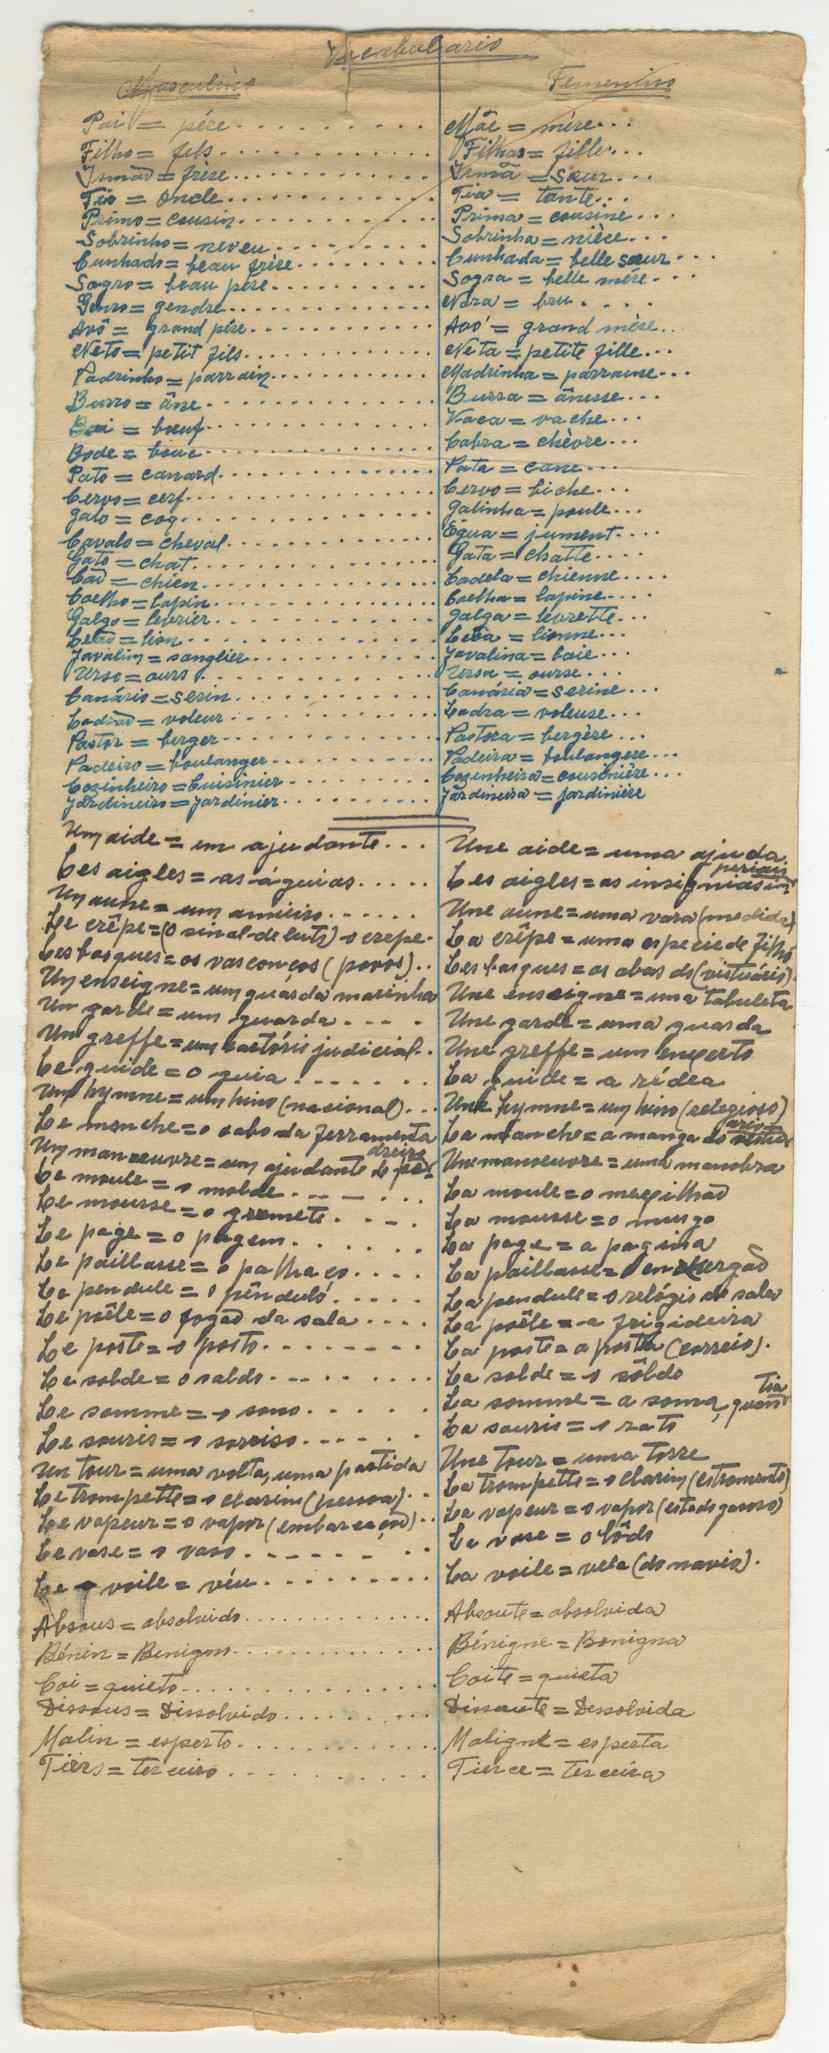 Vocabulario
Masculino
Femenino
Pai = père
Mãe = mère
Filho = fils
Filha = fille
Irmão = frère
Irmã = sœur
Tio = oncle
Tia = tante
Primo = cousin
Prima = cousine
Sobrinho = neveu
Sobrinha = nièce
Cunhado = beau frère
Cunhada = belle sœur
Sogro = beau père
Sogra = belle mère
Genro = gendre
Nora = bru
Avô = grand père
Avó = grand mère
Neto = petit fils
Neta = petite fille
Padrinho = parrain
Madrinha = parraine
Burro = âne
Burra = ânesse
Boi = bœuf
Vaca = vache
Bode = bouc
Cabra = chèvre
Pato = canard
Pata = cane
Cervo = cerf
Cervo = biche
galo = coq
galinha = poule
Cavalo = cheval
Égua = jument
Gato = chat
Gata = chatte
Cão = chien
Cadela = chienne
Coelho = lapin
Coelha = lapine
Galgo = levrier
galga = levrette
Leão = lion
Leôa = lionne
Javalim = sanglier
Javalina = laie
Urso = ours
Ursa = ourse
Canário = serin
Canária = serine
Ladrão = voleur
Ladra = voleuse
Pastor = berger
Pastora = bergère
Padeiro = boulanger
Padeira = boulangere
Cozinheiro = Cuisinier
Cozinheira = cousinière
Jardineiro = Jardinier
Jardineira = jardinière
Un aide = um ajudante
Une aide = uma ajuda
Les aigles = as águias
Les aigles = as insignias imperiais
Un aune = um amieiro
Une aune = uma vara (medida)
Le crêpe = (o sinal de luto) o crepe
La crêpe = uma especie de filhó
Les basques = os vasconços (povos)
Les basques = as abas do (vistuário)
Un enseigne = um guarda marinha
Une enseigne = uma tabuleta
Un garde = um guarda
Une garde = uma guarda
Un greffe = um cartório judicial
Une greffe = um enxerto
Le guide = o guia
La guide = a rédea
Un hymne = um hino (nacional)
Une hymne = um hino (relegioso)
Le manche = o cabo da ferramenta
La manche = a manga do
Un manoeuvre = um ajudante de pedreiro
Une manoeuvre = uma manobra
Le moule = o molde
La moule = o mexilhão
Le mousse = o grumete
La mousse = o musgo
Le page = o pagem
La page = a pagina
Le paillasse = o palhaço
La paillasse = o enxergão
Le pendule = o pêndulo
La pendule = o relógio de sala
Le poêle = o fogão da sala
La poêle = a frigideira
Le poste = o posto
La poste = a posta (correio).
Le solde = o saldo
La solde = o sôldo
Le somme = o sono
La somme = a soma, quantia
Le souris = o sorriso
La souris = o rato
Un tour = uma volta, uma partida
Une tour = uma torre
Le trompette = o clarim (pessoa)
La trompette = o clarim (estromento)
Le vapeur = o vapor (embarcação)
La vapeur = o vapor (estado gasoso)
Le vase = o vaso
La vase = o lôdo
Le voile = véu
La voile = vela (do navio).
Absous = absolvido
Absoute = absolvida
Bénin = Benigno
Bénigne = Benigna
Coi = quieto
Coite = quieta
Dissous = Dissolvido
Dissoute = Dessolvida
Malin = esperto
Maligne = esperta
Tiers = terceiro
Tierce = terceira